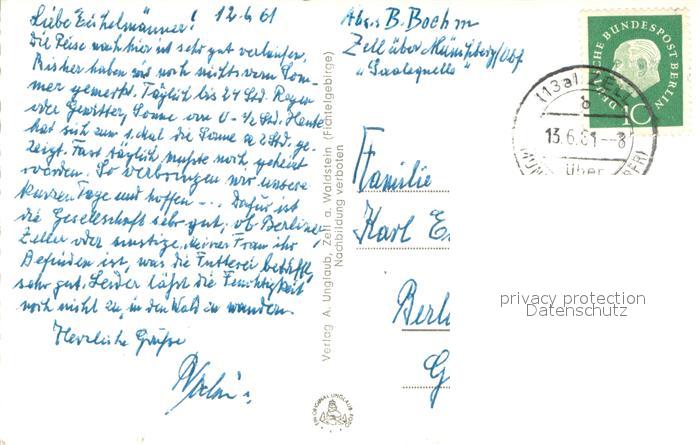 Liebe Eichelmänner! 12.6.61
Die Reise nach hier ist sehr gut verlaufen.
Bisher haben wir noch nichts vom Som-
mer gemerkt. Täglich bis 24 Std. Regen
oder Gewitter, Sonne von 0 - ½ Std. Heute
hat sich zum 1. Mal die Sonne a 2 Std. ge-
zeigt. Fast täglich mußte noch geheizt
werden. So verbringen wir unsere
kurzen Tage und hoffen - .. Dafür ist
die Gesellschaft sehr gut, ob Berliner,
Zeller oder sonstige. Meiner Frau ihr
Befinden ist, was die Futterei betrifft,
sehr gut. Leider läßt die Feuchtigkeit
noch nicht zu, in den Wald zu wandern.
Herzliche Grüße
Verlag A. Unglaub, Zell a. Waldstein (Fichtelgebirge)
Nachbildung verboten
EIN ORIGINAL UNGLAUB FOTO
Abs. B. Boehm
Zell über Münchberg/Obf.
"Saalequelle"
Familie
Karl E.
Berl
G
DEUTSCHE BUNDESPOST BERLIN
10
(13a) ZELL
b
13.6.61--8
über
privacy protection
Datenschutz